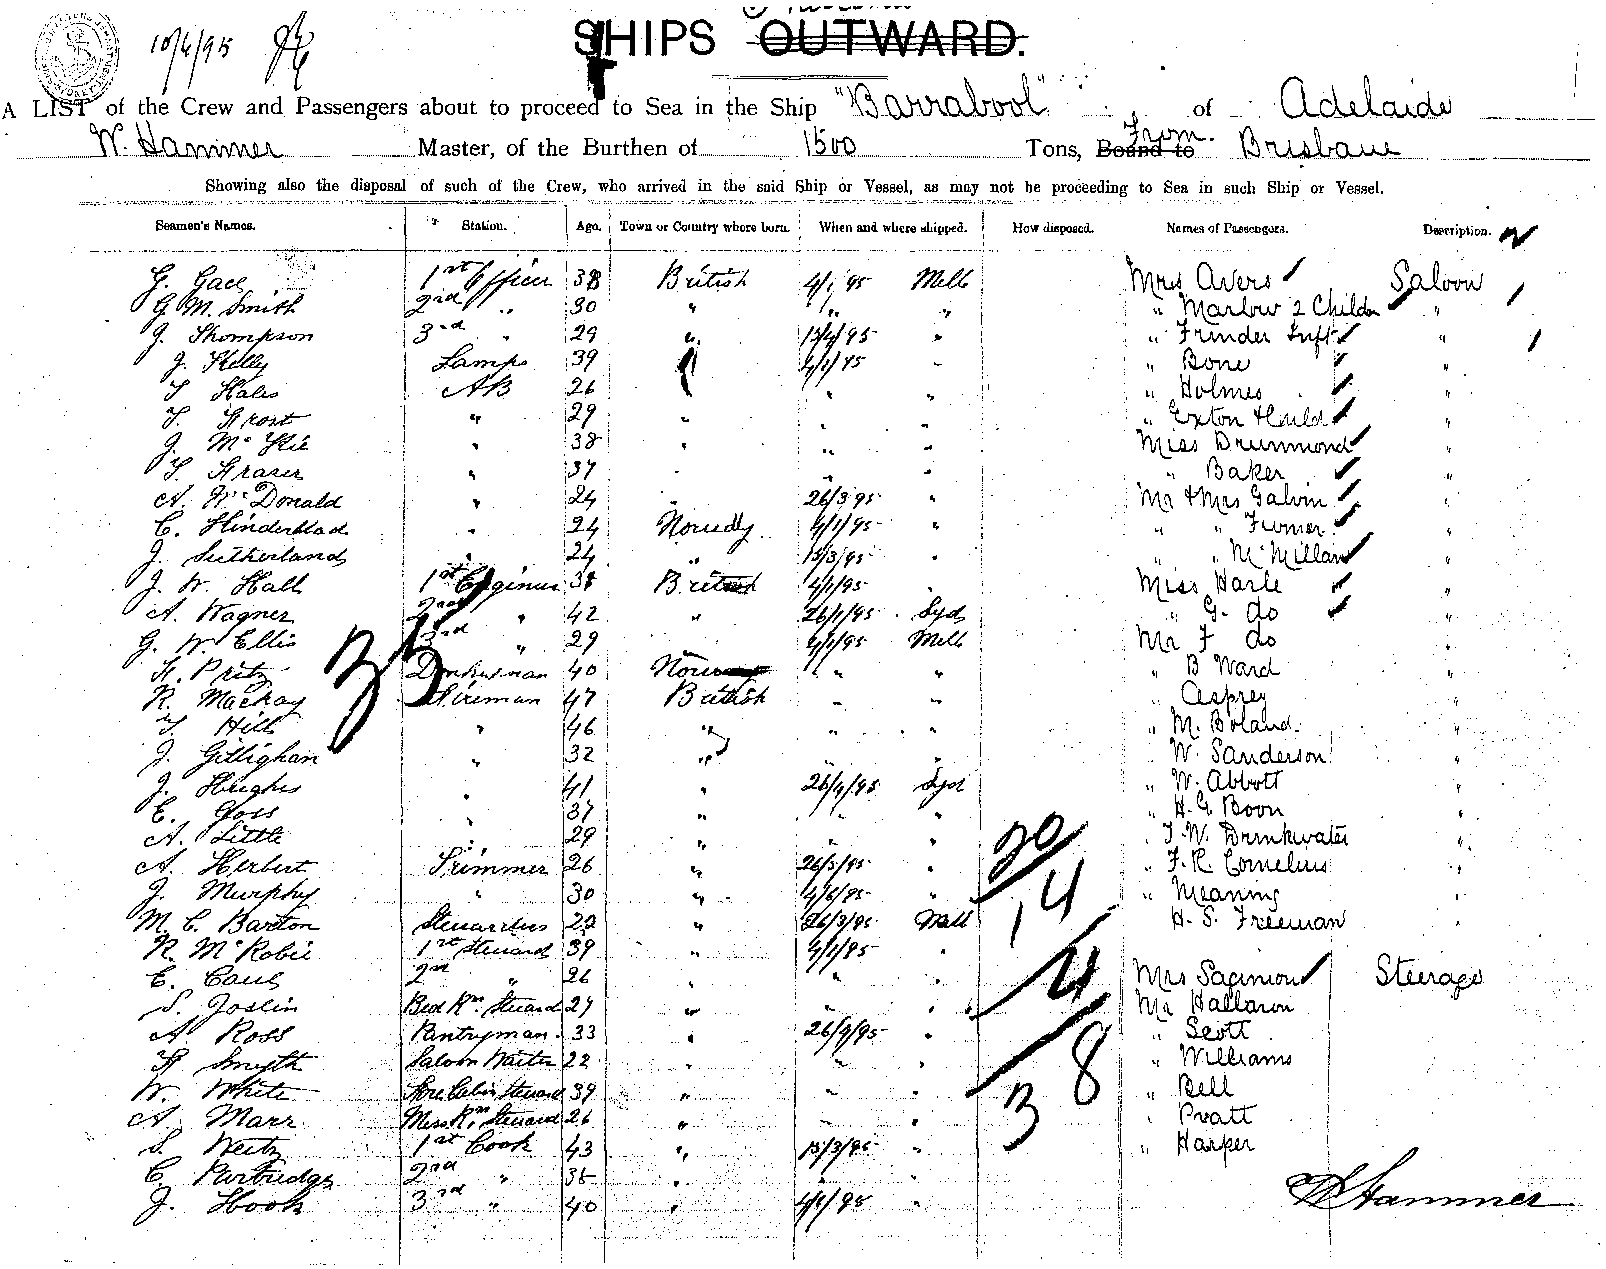 10/4/95
SHIPS OUTWARD.
A LIST of the Crew and Passengers about to proceed to Sea in the Ship "Barrabool" of Adelaide
W. Hammer Master, of the Burthen of 1500 Tons, Bound to From Brisbane
Showing also the disposal of such of the Crew, who arrived in the said Ship or Vessel, as may not be proceeding to Sea in such Ship or Vessel.
Seamen's Names. Station. Age. Town or Country where born. When and where shipped. How disposed. Names of Passengers. Description.
G. 1st Officer 38 British 4/1/95 Melb Mrs Avers Saloon
G. M. Smith 2nd " 30 " " " " Marlow 2 Childn "
J. Thompson 3rd " 29 " 13/4/95 " " Trinder "
J. Kelly Lamps 39 4/1/95 " " Bone "
T. Hales AB 26 " " " Holmes "
T. Frost " 29 " " " " Exton & Child "
J. McKie " 38 " " " Miss Drummond "
T. Fraser " 37 " " " " Baker "
A. McDonald " 24 " 26/3/95 " Mr & Mrs Galvin "
C. Hinderblad " 24 4/1/95 " " " "
J. Sutherland " 24 " 13/3/95 " " " McMillan "
J. W. Hall 1st British 4/1/95 " Miss Harle "
A. Wagner 2nd " 42 " 26/1/95 Syd " G. do "
G. W. Ellis 3rd " 29 4/1/95 Melb Mr F do "
Pritz Donkeyman 40 " " " B Ward "
R. Mackay Fireman 47 British " " " Asprey "
T. Hill " 46 " " " " M. Boland "
J. Gillighan " 32 " " " " W. Sanderson "
J. Hughes " 41 " Syd " W. Abbott "
C. Goss " 37 " " " " H. G. Boon "
A. Little " 29 " " " " T. W. Drinkwater "
A. Herbert Trimmer 26 " " 20 " F. R. Cornelius "
J. Murphy " 30 " " 14 " Meaning "
M. C. Barton Stewardess " 26/3/95 Melb H. S. Freeman "
R. McRobie 1st Steward 39 " 4/1/95 "
C. 2nd " 26 " " 4 Mrs Steerage
S. Joslin Bed Rm. Steward 27 " " " Mr Halloron
A. Ross Pantryman 33 " " " Scott
Smyth Saloon Waiter 22 " " " Williams
W. White Fore Cabin Steward 39 " " " 8 " Bell
A. Marr Mess Rm. Steward 26 " " " 3 " Pratt
S. Weitz 1st Cook 43 " 13/3/95 " " Harper
C. Partridge 2nd " " " "
J. Hook 3rd " 40 " 4/1/95 "
W Hammer